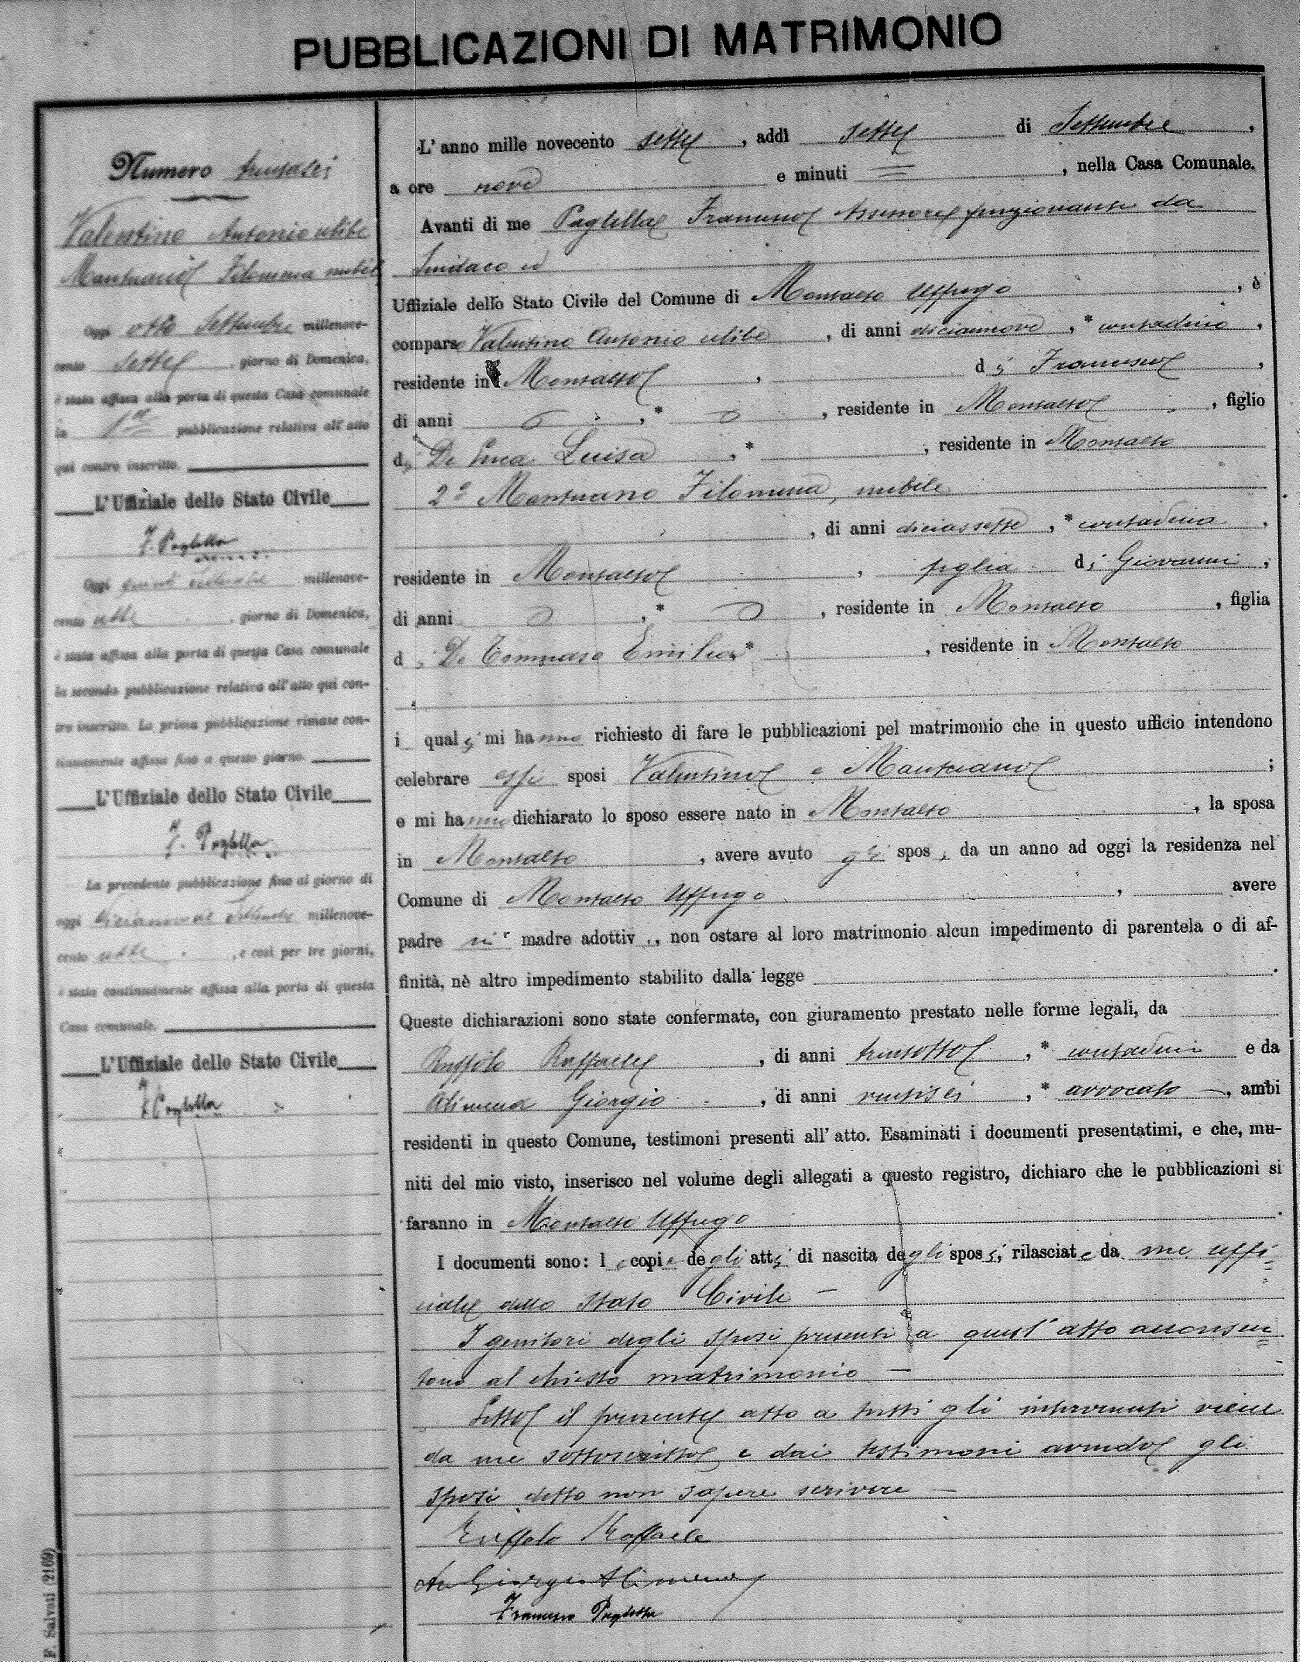 PUBBLICAZIONI DI MATRIMONIO
Numero trentasei
Valentino Antonio celibe
Mantuano Filomena nubile
Oggi otto Settembre millenove-
cento sette, giorno di Domenica,
è stata affissa alla porta di questa Casa comunale
la 1ª pubblicazione relativa all'atto
qui contro inscritto.
L'Uffiziale dello Stato Civile
F. Paglilla
Oggi quindici Settembre millenove-
cento sette, giorno di Domenica,
è stata affissa alla porta di questa Casa comunale
la seconda pubblicazione relativa all'atto qui con-
tro inscritto. La prima pubblicazione rimase con-
tinuamente affissa fino a questo giorno.
L'Uffiziale dello Stato Civile
F. Paglilla
La precedente pubblicazione fino al giorno di
oggi diciannove Settembre millenove-
cento sette, e così per tre giorni,
è stata continuamente affissa alla porta di questa
Casa comunale.
L'Uffiziale dello Stato Civile
F. Paglilla
L'anno mille novecento sette, addì sette di Settembre,
a ore nove e minuti =, nella Casa Comunale.
Avanti di me Paglilla Francesco Assessore funzionante da
Sindaco ed
Uffiziale dello Stato Civile del Comune di Montalto Uffugo, è
comparso Valentino Antonio celibe, di anni diciannove, * contadino,
residente in Montalto, di Francesco,
di anni , * , residente in Montalto, figlio
di De Luca Luisa, * , residente in Montalto
2º Mantuano Filomena, nubile
, di anni diciassette, * contadina,
residente in Montalto, figlia di Giovanni,
di anni , * , residente in Montalto, figlia
di De Tommaso Emilia, * , residente in Montalto
i quali mi hanno richiesto di fare le pubblicazioni pel matrimonio che in questo ufficio intendono
celebrare essi sposi Valentino e Mantuano;
e mi hanno dichiarato lo sposo essere nato in Montalto, la sposa
in Montalto, avere avuto gli sposi, da un anno ad oggi la residenza nel
Comune di Montalto Uffugo, avere
padre nè madre adottivi, non ostare al loro matrimonio alcun impedimento di parentela o di af-
finità, nè altro impedimento stabilito dalla legge.
Queste dichiarazioni sono state confermate, con giuramento prestato nelle forme legali, da
Ruffolo Raffaele, di anni trentotto, * contadino e da
Alimena Giorgio, di anni ventisei, * avvocato, ambi
residenti in questo Comune, testimoni presenti all'atto. Esaminati i documenti presentatimi, e che, mu-
niti del mio visto, inserisco nel volume degli allegati a questo registro, dichiaro che le pubblicazioni si
faranno in Montalto Uffugo.
I documenti sono: le copie degli atti di nascita degli sposi, rilasciate da me uffi=
ciale dello Stato Civile —
I genitori degli sposi presenti a quest'atto acconsen=
tono al chiesto matrimonio —
Letto il presente atto a tutti gli intervenuti viene
da me sottoscritto e dai testimoni avendo gli
sposi detto non sapere scrivere —
Ruffolo Raffaele
Giorgio Alimena
Francesco Paglilla
F. Salvati (2169)